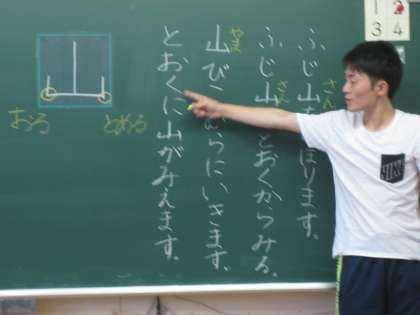 1 2
3 4
さん
ふじ山 ぼります。
さん
ふじ山 とおくからみる。
やま
山び らにいきます。
とおくに山がみえます。
山
とめる
おる